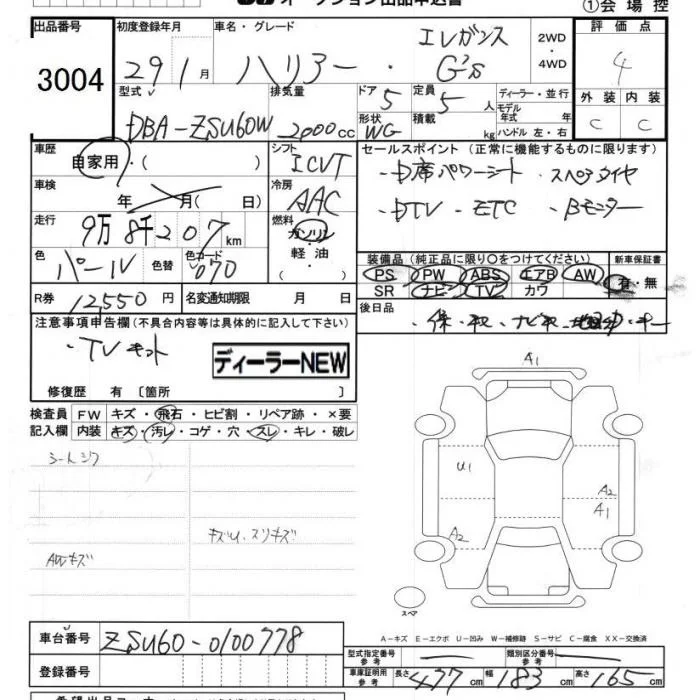 オークション出品申込書 ①会場控
出品番号 初度登録年月 車名・グレード 評価点
3004 29 1月 ハリアー・エレガンス G's 2WD・4WD 4
型式 排気量 ドア 定員 ディーラー・並行 外装 内装
DBA-ZSU60W 2000cc 5 5人 モデル年式 年 C C
形状 積載
WG kg ハンドル 左・右
車歴 シフト セールスポイント (正常に機能するものに限ります)
自家用・( ) ICVT ・D席パワーシート ・スペアタイヤ
車検 冷房
年 月( 日) AAC ・DTV ・ETC ・Bモニター
走行 燃料
9万8千207km ガソリン・軽油・( )
色 色替 色コード 装備品(純正品に限り○をつけてください) 新車保証書
パール 070 PS PW ABS エアB AW 有・無
SR ナビ TV カワ
R券 12,550円 名変通知期限 月 日 後日品
注意事項申告欄(不具合内容等は具体的に記入して下さい)
・TVキット
ディーラーNEW
修復歴 有〔箇所 〕
検査員 FW キズ・飛石・ヒビ割・リペア跡・×要
記入欄 内装 キズ・汚レ・コゲ・穴・スレ・キレ・破レ
シートシワ
キズU、スリキズ
AWキズ
A1
U1
A2
A1
A2
スペア
A-キズ E-エクボ U-凹み W-補修跡 S-サビ C-腐食 XX-交換済
車台番号 ZSU60-0100778
型式指定番号 参考 類別区分番号 参考
登録番号 車庫証明用 参考 長さ 477cm 幅 183cm 高さ 165cm